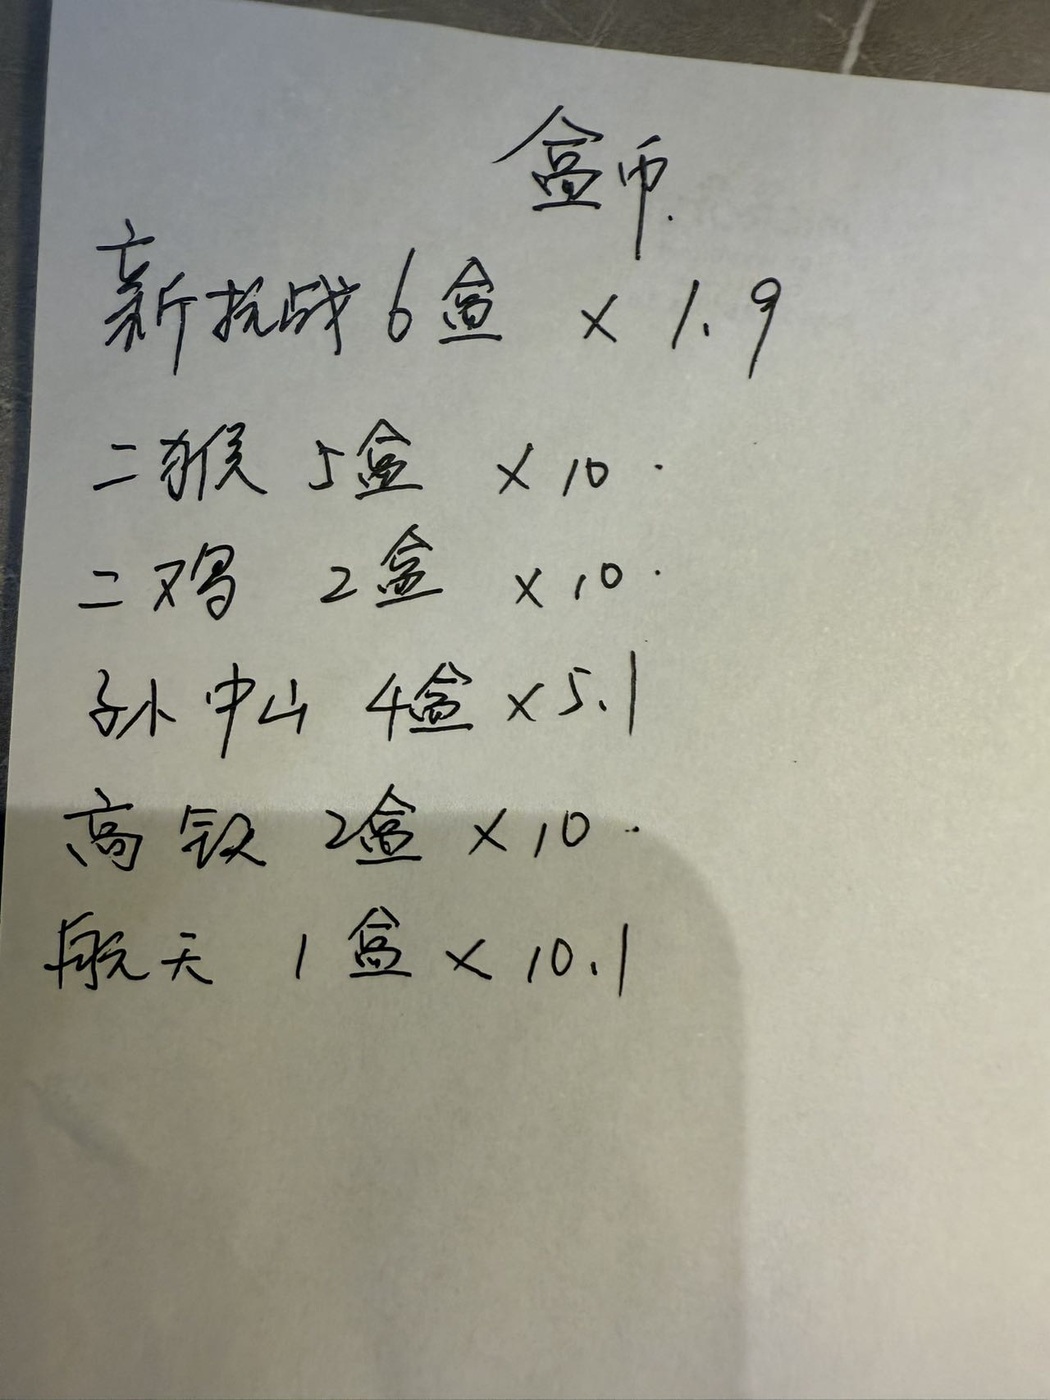 盒币.
新抗战6盒 × 1.9
二猴 5盒 × 10.
二鸡 2盒 × 10.
孙中山 4盒 × 5.1
高铁 2盒 × 10.
航天 1盒 × 10.1